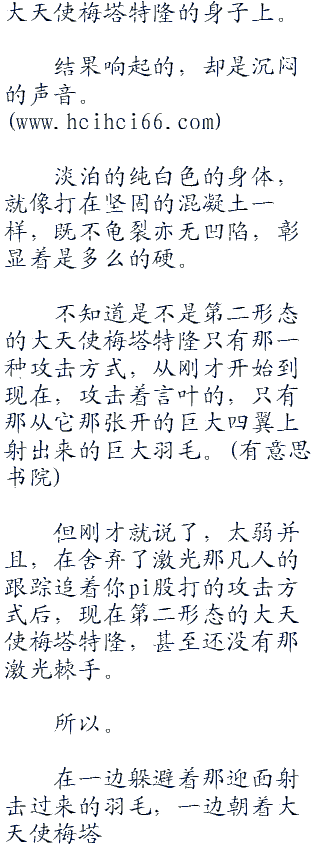 大天使梅塔特隆的身子上。
结果响起的，却是沉闷
的声音。
(www.hcihci66.com)
淡泊的纯白色的身体，
就像打在坚固的混凝土一
样，既不龟裂亦无凹陷，彰
显着是多么的硬。
不知道是不是第二形态
的大天使梅塔特隆只有那一
种攻击方式，从刚才开始到
现在，攻击着言叶的，只有
那从它那张开的巨大四翼上
射出来的巨大羽毛。(有意思
书院)
但刚才就说了，太弱并
且，在舍弃了激光那凡人的
跟踪追着你pi股打的攻击方
式后，现在第二形态的大天
使梅塔特隆，甚至还没有那
激光棘手。
所以。
在一边躲避着那迎面射
击过来的羽毛，一边朝着大
天使梅塔